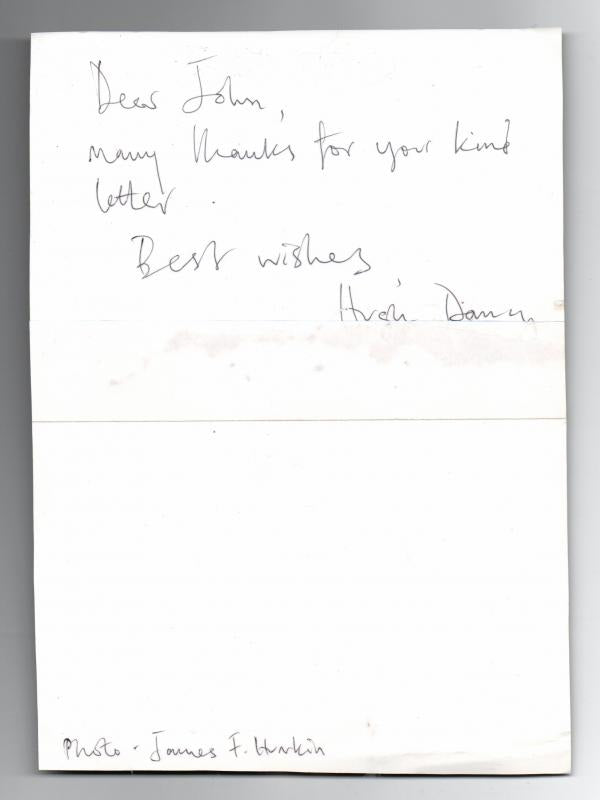 Dear John,
many thanks for your kind
letter.
Best wishes,
Hugh
Photo - James F. Hunkin